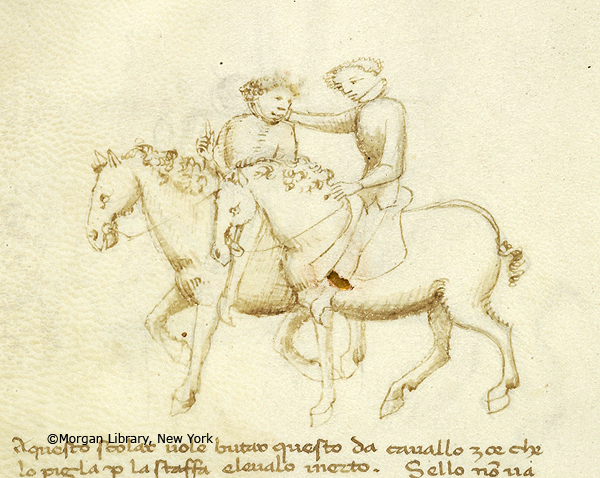 ©Morgan Library, New York
Aquesto scolar vole butar questo da cavallo zoe che
lo pigla p la staffa elevalo inerto. Sello nō va